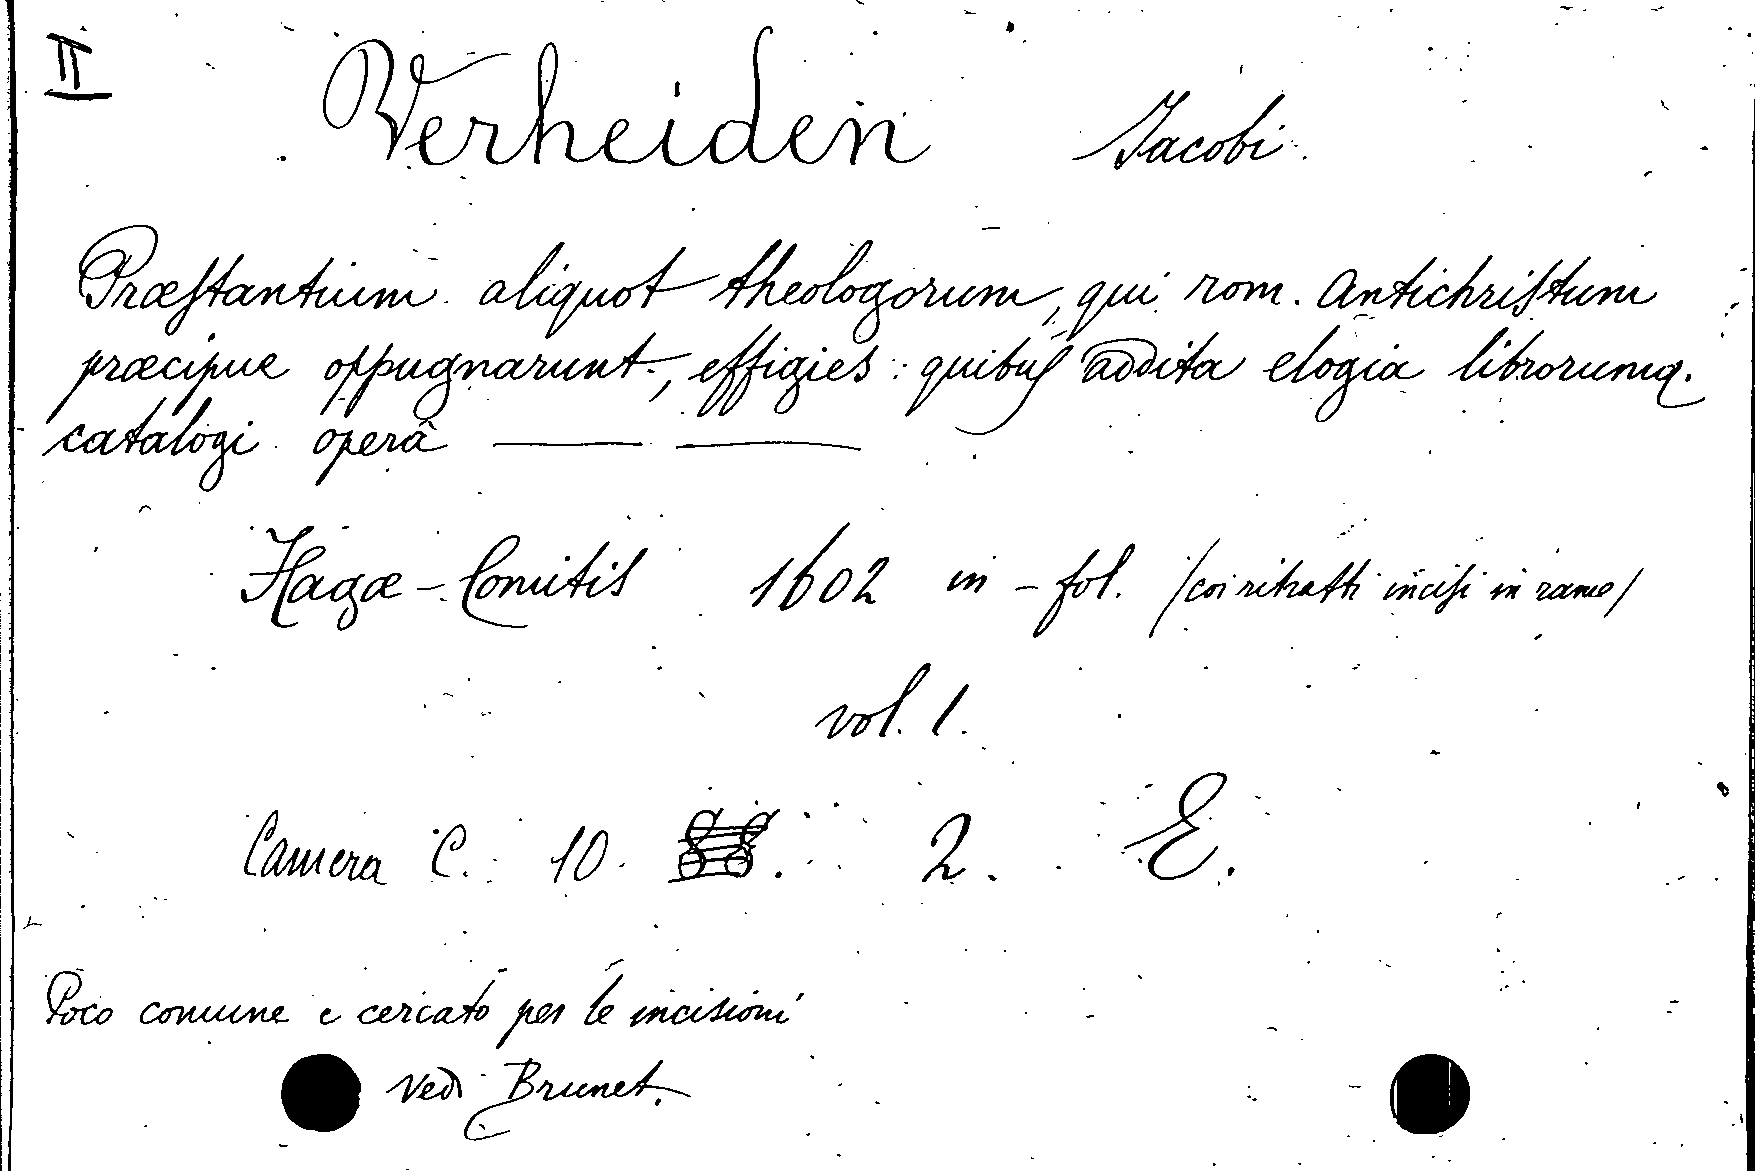 II
Verheiden Jacobi
Præstantium aliquot theologorum, qui rom. Antichristum
præcipue oppugnarunt, effigies: quibus addita elogia librorumq.
catalogi operâ
Hagæ-Comitis 1602 in-fol. (coi ritratti incisi in rame)
vol. 1.
Camera C. 10. 2. E.
Poco comune e cercato per le incisioni
Vedi Brunet.